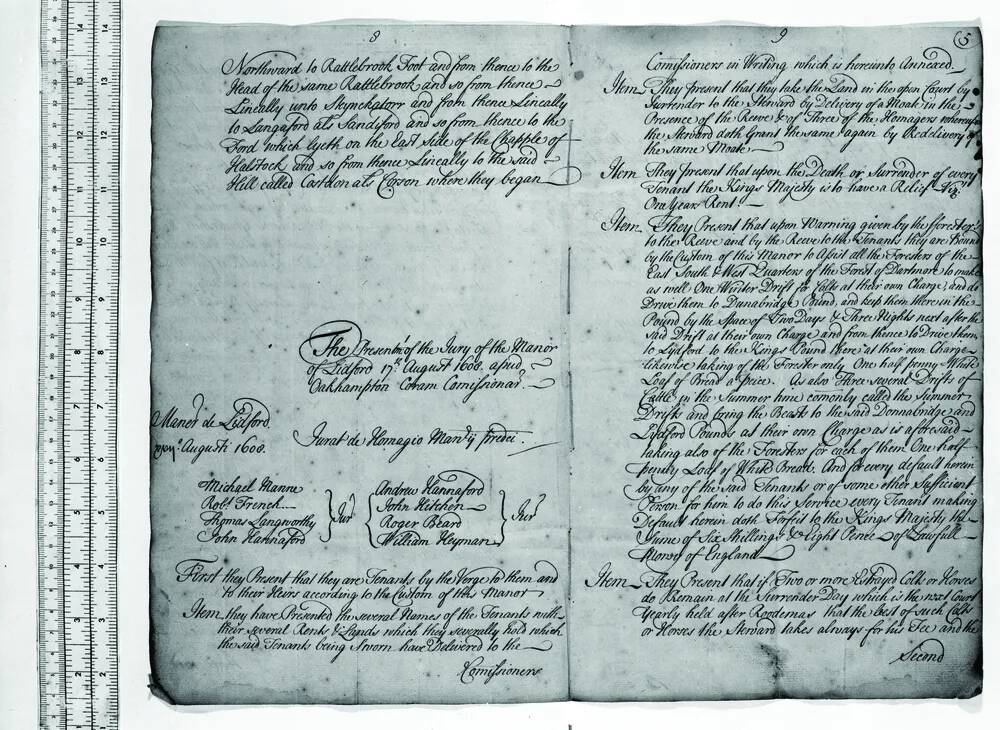 8
Northward to Rattlebrook Foot and from thence to the
Head of the same Rattlebrook and so from thence
Lineally unto Stenekatorr and from thence Lineally
to Langaford als Sandiford and so from thence to the
Ford which lyeth on the East Side of the Chapple of
Halstock and so from thence Lineally to the said
Hill called Cosdon als Corson where they began
The Presentmt of the Jury of the Manor
of Lidford 17th August 1608 apud
Oakhampton Coram Comissionar
Manor de Lidford
Augusti 1608
Jurat de Homagio Manij predci
Michael Manne
Robt French
Thomas Langworthy
John Hannaford
Jur
Andrew Hannaford
John Hitchen
Roger Beard
William Heyman
Jur
First they Present that they are Tenants by the Verge to them and
to their Heirs according to the Custom of this Manor
Item they have Presented the several Names of the Tenants with
their several Rents & Lands which they severally hold which
the said Tenants being Sworn have Delivered to the
Comissioners
9
5
Comissioners in Writing which is hereunto Annexed
Item They present that they take the Land in the open Court by
Surrender to the Steward by Delivery of a Moate in the
Presence of the Reeve & of Three of the Homagers whereupon
the Steward doth Grant the same again by Redelivery of
the same Moate
Item They Present that upon the Death or Surrender of every
Tenant the Kings Majesty is to have a Relief Viz
One Years Rent
Item They Present that upon Warning given by the fforester
to the Reeve and by the Reeve to the Tenants they are Bound
by the Custom of this Manor to Assist all the Foresters of the
East South & West Quarters of the Forest of Dartmore to make
as well One Winter Drift for Colts at their own Charge, and do
Drive them to Dunabridge Pound, and keep them there in the
Pound by the Space of Two Days & Three Nights next after the
said Drift at their own Charge and from thence to Drive them
to Lydford to the Kings Pound there at their own Charge
likewise taking of the Forester only One half penny White
Loaf of Bread a Peice. As also Three several Drifts of
Cattle in the Summer time comonly called the Summer
Drift and bring the Beast to the said Donnabridge and
Lydford Pounds at their own Charge as is aforesaid
taking also of the Foresters for each of them One half
penny Loaf of White Bread. And for every default herein
by any of the said Tenants or of some other Sufficient
Person for him to do this Service every Tenant making
Default herein doth Forfeit to the Kings Majesty the
Sume of Six Shillings & Eight Pence of Lawfull
Money of England
Item They Present that if Two or more Estrayed Colts or Horses
do Remain at the Surrender Day which is the next Court
Yearly held after Roodemas that the best of such Colts
or Horses the Steward takes always for his Fee and the
Second